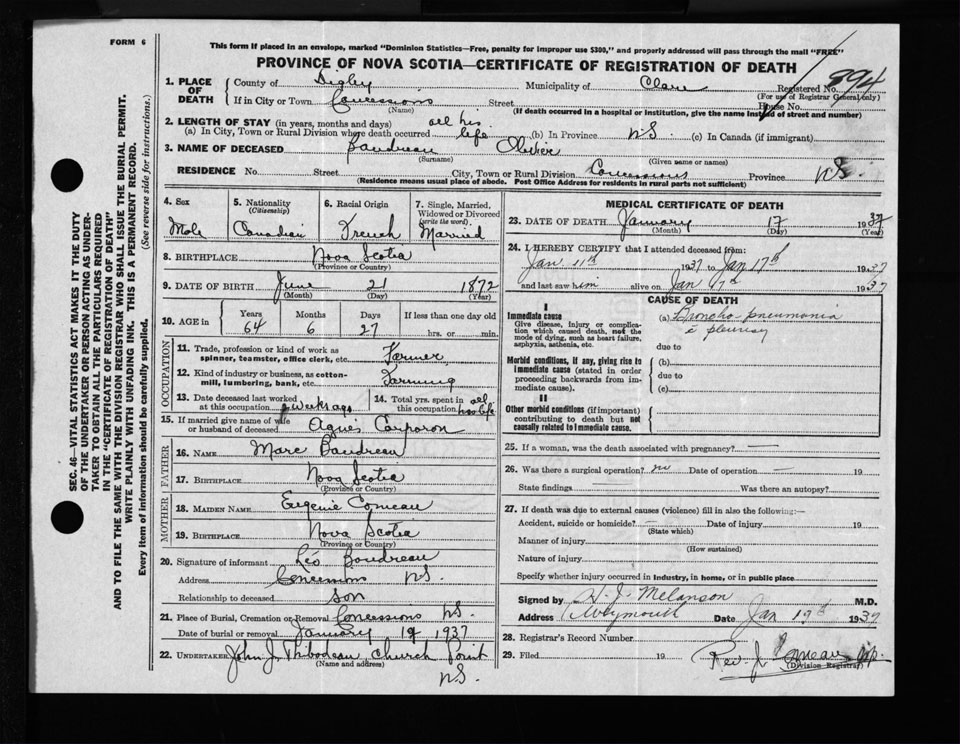 FORM 6
This form if placed in an envelope, marked "Dominion Statistics—Free, penalty for improper use $300," and properly addressed will pass through the mail "FREE"
PROVINCE OF NOVA SCOTIA—CERTIFICATE OF REGISTRATION OF DEATH
894
1. PLACE OF DEATH
County of Digby Municipality of Clare Registered No.
(For use of Registrar General only)
If in City or Town Concessions Street House No.
(Name) (If death occurred in a hospital or institution, give the name instead of street and number)
2. LENGTH OF STAY (in years, months and days) all his
(a) In City, Town or Rural Division where death occurred life (b) In Province N.S. (c) In Canada (if immigrant)
3. NAME OF DECEASED Boudreau Olivier
(Surname) (Given name or names)
RESIDENCE No. Street City, Town or Rural Division Concessions Province N.S.
(Residence means usual place of abode. Post Office Address for residents in rural parts not sufficient)
4. Sex Male
5. Nationality (Citizenship) Canadian
6. Racial Origin French
7. Single, Married, Widowed or Divorced (write the word) Married
8. BIRTHPLACE Nova Scotia
(Province or Country)
9. DATE OF BIRTH June 21 1872
(Month) (Day) (Year)
10. AGE in Years Months Days If less than one day old
64 6 27 hrs. or min.
OCCUPATION
11. Trade, profession or kind of work as spinner, teamster, office clerk, etc. Farmer
12. Kind of industry or business, as cotton-mill, lumbering, bank, etc. Farming
13. Date deceased last worked at this occupation weeks ago
14. Total yrs. spent in this occupation all his life
15. If married give name of wife or husband of deceased Agnes Corporon
FATHER
16. NAME Marc Boudreau
17. BIRTHPLACE Nova Scotia
(Province or Country)
MOTHER
18. MAIDEN NAME Eugenie Comeau
19. BIRTHPLACE Nova Scotia
(Province or Country)
20. Signature of informant Léo Boudreau
Address Concessions N.S.
Relationship to deceased son
21. Place of Burial, Cremation or Removal Concessions N.S.
Date of burial or removal January 19 1937
22. UNDERTAKER John J. Thibodeau Church Point
(Name and address) N.S.
MEDICAL CERTIFICATE OF DEATH
23. DATE OF DEATH January 17 1937
(Month) (Day) (Year)
24. I HEREBY CERTIFY that I attended deceased from:
Jan 11th 1937 to Jan 17th 1937
and last saw him alive on Jan 17th 1937
CAUSE OF DEATH
I
Immediate cause
Give disease, injury or complication which caused death, not the mode of dying, such as heart failure, asphyxia, asthenia, etc.
(a) Broncho-pneumonia
c̄ pleurisy
due to
Morbid conditions, if any, giving rise to immediate cause (stated in order proceeding backwards from immediate cause).
(b)
due to
(c)
II
Other morbid conditions (if important) contributing to death but not causally related to immediate cause.
25. If a woman, was the death associated with pregnancy? —
26. Was there a surgical operation? no Date of operation — 19
State findings — Was there an autopsy?
27. If death was due to external causes (violence) fill in also the following:—
Accident, suicide or homicide? — Date of injury 19
(State which)
Manner of injury
(How sustained)
Nature of injury
Specify whether injury occurred in industry, in home, or in public place
Signed by H. J. Melanson M.D.
Address Weymouth Date Jan 19th 1937
28. Registrar's Record Number
29. Filed 19 Rev J Comeau
(Division Registrar)
SEC. 46—VITAL STATISTICS ACT MAKES IT THE DUTY
OF THE UNDERTAKER OR PERSON ACTING AS UNDER-
TAKER TO OBTAIN ALL THE PARTICULARS REQUIRED
IN THE "CERTIFICATE OF REGISTRATION OF DEATH"
AND TO FILE THE SAME WITH THE DIVISION REGISTRAR WHO SHALL ISSUE THE BURIAL PERMIT.
WRITE PLAINLY WITH UNFADING INK. THIS IS A PERMANENT RECORD.
Every item of information should be carefully supplied. (See reverse side for instructions.)